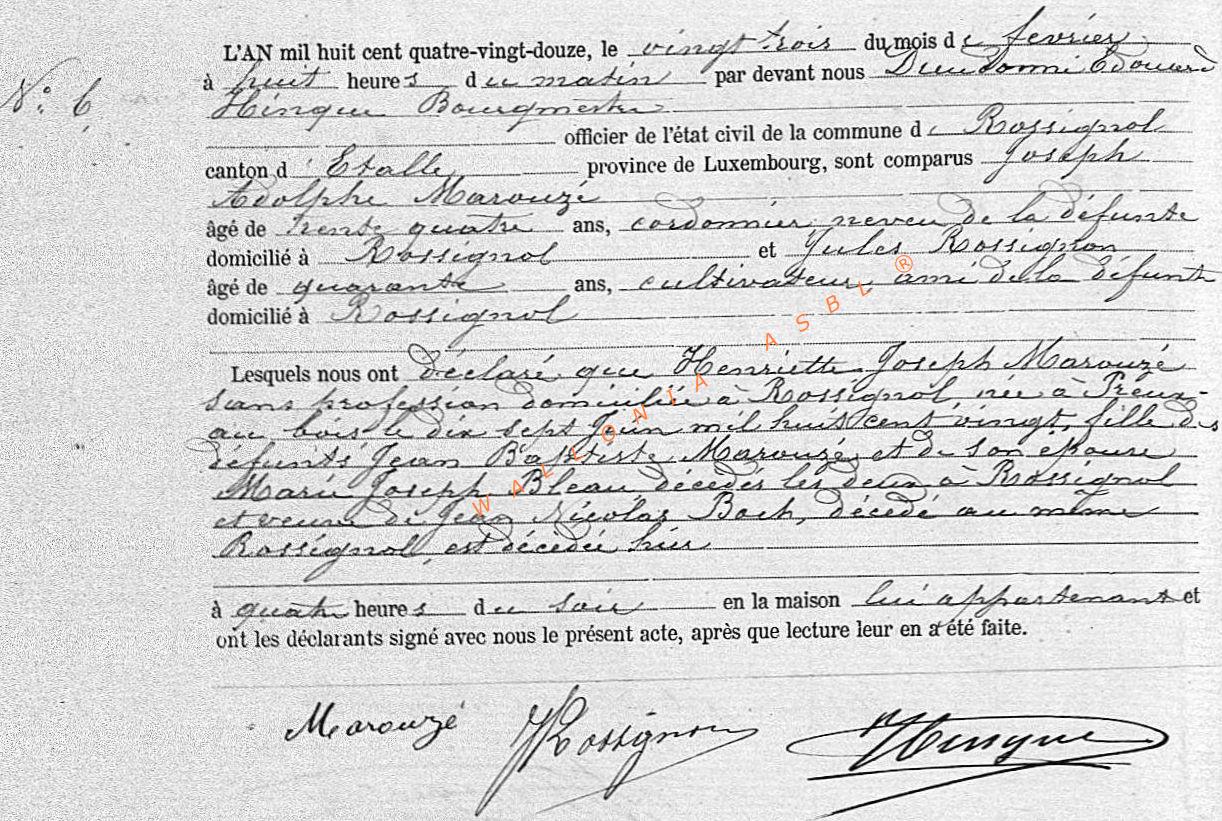 L'AN mil huit cent quatre-vingt-douze, le vingt trois du mois de février
N° 6
à huit heures du matin par devant nous Dieudonné Edouard
Hinque Bourgmestre
officier de l'état civil de la commune de Rossignol
canton d'Etalle province de Luxembourg, sont comparus Joseph
Adolphe Marouzé
âgé de trente quatre ans, cordonnier, neveu de la défunte
domicilié à Rossignol et Jules Rossignon
âgé de quarante ans, cultivateur, ami de la défunte
domicilié à Rossignol
Lesquels nous ont déclaré que Henriette Joseph Marouzé
sans profession domiciliée à Rossignol, née à Preux-
au bois le dix sept Juin mil huit cent vingt, fille des
défunts Jean Baptiste Marouzé et de son épouse
Marie Joseph Bleau, décédés les deux à Rossignol
et veuve de Jean Nicolas Boch, décédé au même
Rossignol, est décédée hier
à quatre heures du soir en la maison lui appartenant et
ont les déclarants signé avec nous le présent acte, après que lecture leur en a été faite.
Marouzé JRossignon Hinque
WALLONIA ASBL ®